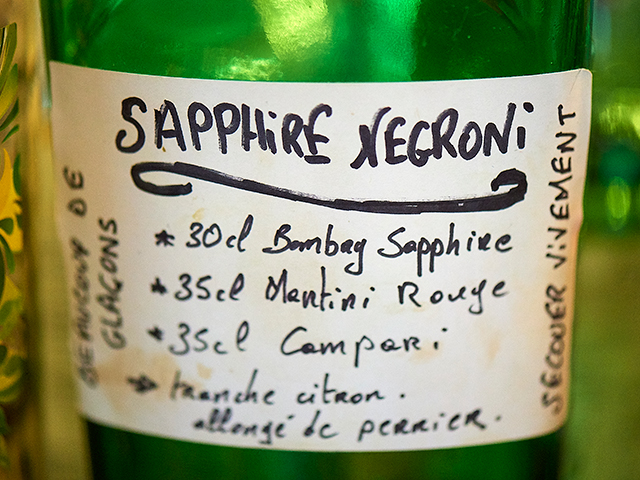 SAPPHIRE NEGRONI
* 30cl Bombay Sapphire
* 35cl Martini Rouge
* 35cl Campari
* tranche citron.
allongé de perrier.
BEAUCOUP DE
GLAÇONS
SECOUER VIVEMENT